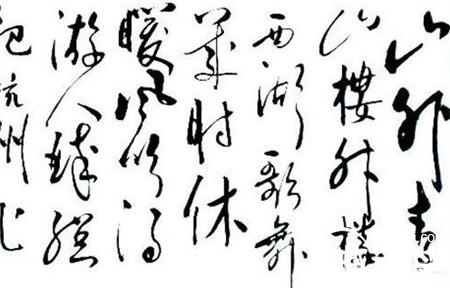 山外青
山樓外樓
西湖歌舞
幾时休
暖风吹得
游人醉
把杭州作